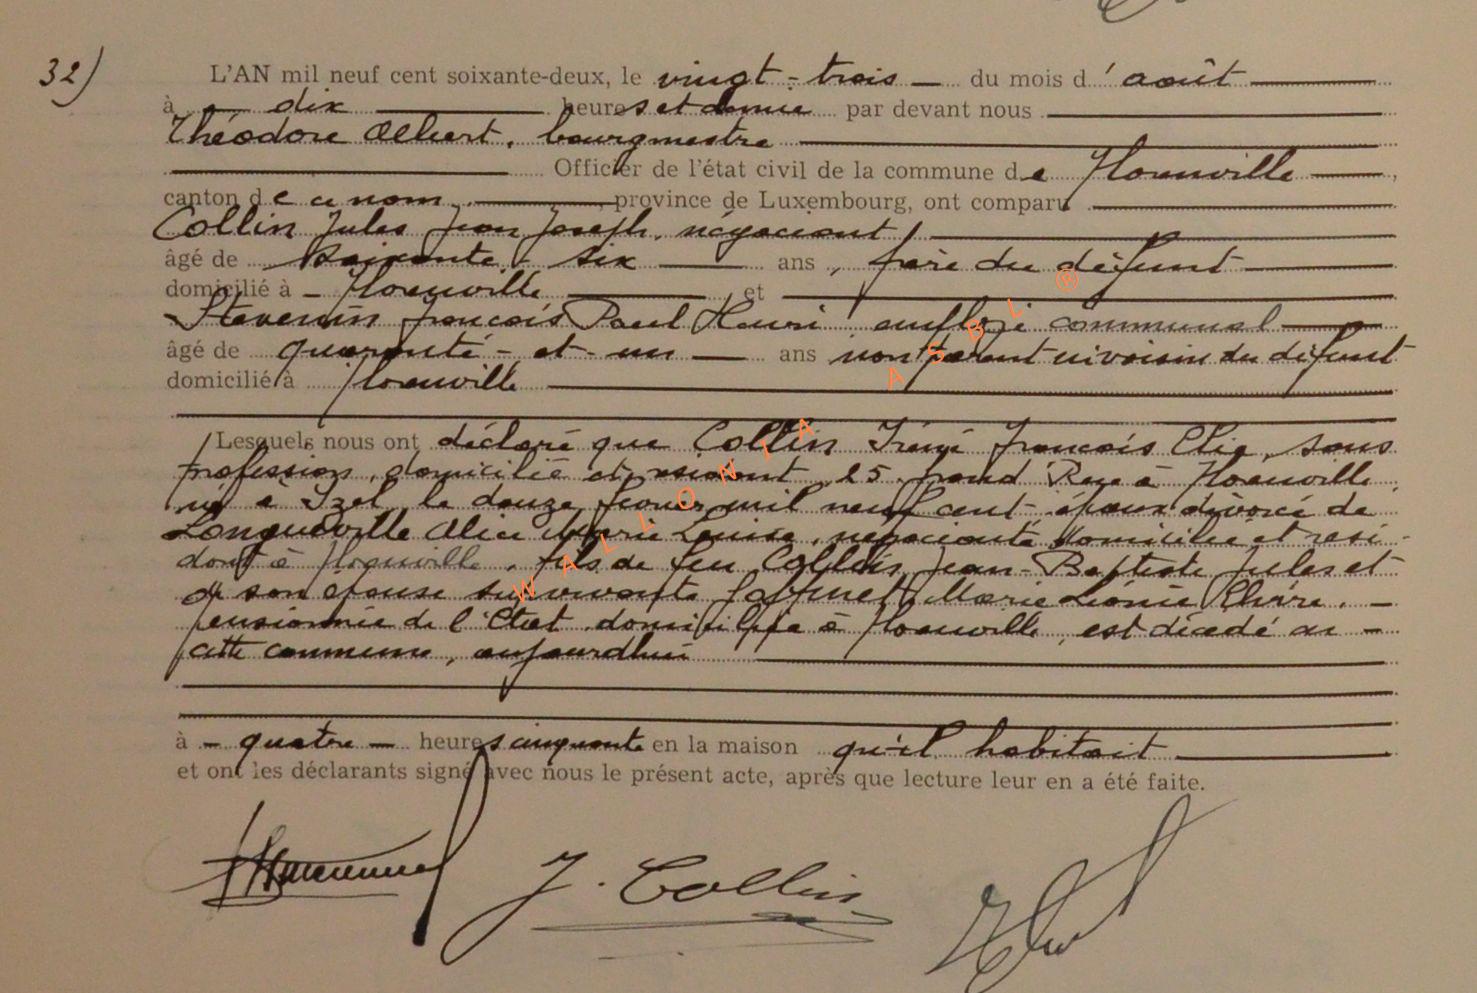 32)
L'AN mil neuf cent soixante-deux, le vingt-trois du mois d'août
à dix heures et demie par devant nous
Théodore Albert, bourgmestre
Officier de l'état civil de la commune de Florenville,
canton de ce nom, province de Luxembourg, ont comparu
Collin Jules Jean Joseph, négociant,
âgé de soixante-six ans, frère du défunt
domicilié à Florenville et
Stevenin François Paul Henri employé communal
âgé de quarante-et-un ans non parent ni voisin du défunt
domicilié à Florenville
Lesquels nous ont déclaré que Collin Iréné François Elie, sans
profession, domicilié et résidant 25 grand Rue à Florenville
né à Izel le douze février mil neuf cent époux divorcé de
Longueville Alice Marie Louise, négociante domiciliée et rési-
dant à Florenville, fils de feu Collin Jean-Baptiste Jules et
de son épouse survivante Marie Léonie
pensionnée de l'Etat domiciliée à Florenville, est décédé en
cette commune, aujourdhui
à quatre heures cinquante en la maison qu'il habitait
et ont les déclarants signé avec nous le présent acte, après que lecture leur en a été faite.
J. Collin
WALLONIA ASBL ®